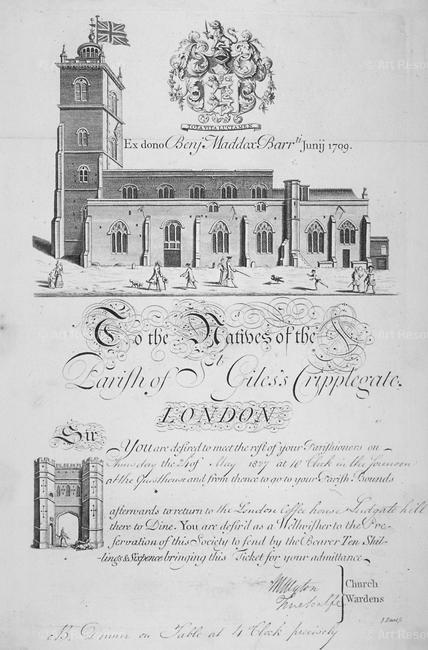 TOTA VITA LUCTAMEN
Ex dono Benj. Maddox Barr.tt Junij 1709.
To the Natives of the
Parish of St. Giles's Cripplegate.
LONDON
Sir
You are desired to meet the rest of your Parishioners on
Thursday the of May at 10 Clock in the forenoon
at the Questhouse and from thence to go to your Parish Bounds
afterwards to return to the London Coffee house Ludgate hill
there to Dine. You are desir'd as a Wellwisher to the Pre-
servation of this Society to send by the Bearer Ten Shil-
lings & Sixpence bringing this Ticket for your admittance
Church
Wardens
Dinner on Table at 4 Clock precisely